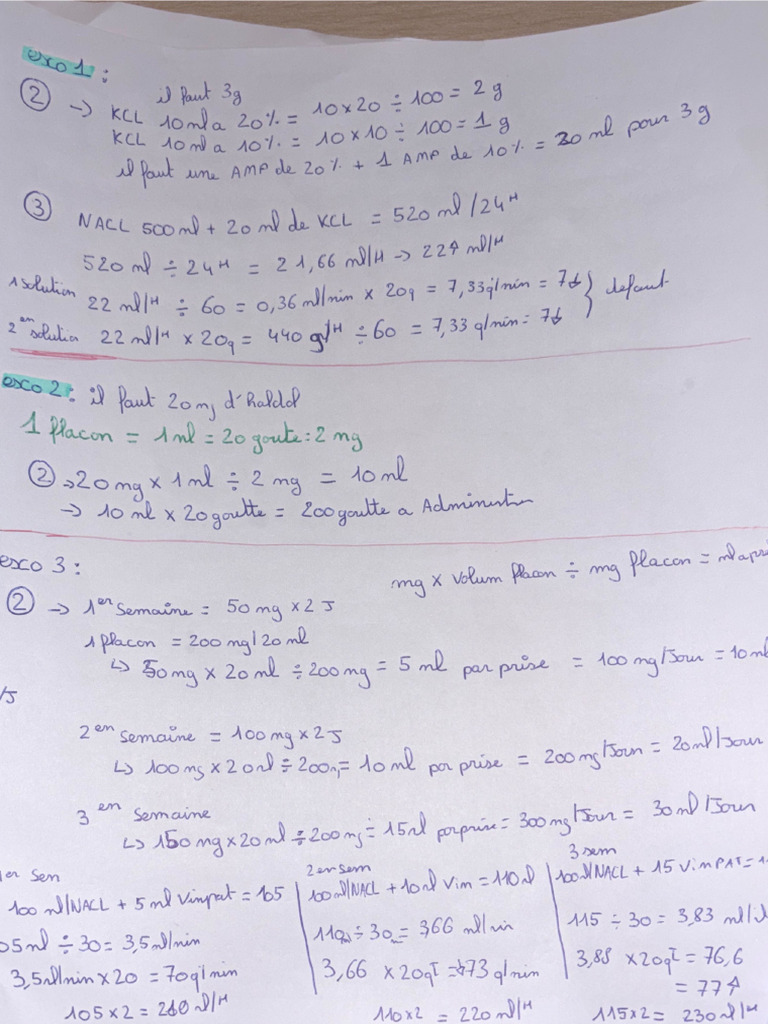 exo 1 :
il faut 3g
② → KCL 10ml a 20% = 10 x 20 ÷ 100 = 2 g
KCL 10ml a 10% = 10 x 10 ÷ 100 = 1 g
il faut une AMP de 20% + 1 AMP de 10% = 20 ml pour 3 g
③ NACL 500ml + 20 ml de KCL = 520 ml / 24H
520 ml ÷ 24H = 21,66 ml/H → 22↑ ml/H
1 solution 22 ml/H ÷ 60 = 0,36 ml/min x 20g = 7,33g/min = 7↓
2en solution 22 ml/H x 20g = 440 g/H ÷ 60 = 7,33 g/min = 7↓ } defaut
exo 2 : il faut 20 mg d'haldol
1 flacon = 1 ml = 20 goute : 2 mg
② → 20 mg x 1 ml ÷ 2 mg = 10 ml
→ 10 ml x 20 goutte = 200 goutte a
exo 3 :
mg x volum flacon ÷ mg flacon =
② → 1er semaine = 50 mg x 2 J
1 flacon = 200 mg/20 ml
↳ 50mg x 20 ml ÷ 200 mg = 5 ml par prise = 100 mg/Jour = 10 ml
/J
2en semaine = 100 mg x 2 J
↳ 100 mg x 20 ml ÷ 200 = 10 ml par prise = 200 mg/Jour = 20 ml/Jour
3en semaine
↳ 150 mg x 20 ml ÷ 200 mg = 15 ml par prise = 300 mg/Jour = 30 ml/Jour
1er Sem
100 ml/NACL + 5 ml Vimpat = 105
05ml ÷ 30 = 3,5 ml/min
3,5ml/min x 20 = 70g/min
105 x 2 = 210 ml/H
2er sem
100ml/NACL + 10ml Vim = 110 ml
110 ÷ 30 = 3,66 ml/min
3,66 x 20gT = 73 g/min
110 x 2 = 220 ml/H
3 sem
100ml/NACL + 15 VimPAT =
115 ÷ 30 = 3,83
3,83 x 20gT = 76,6
= 77↑
115x2 = 230 ml/H